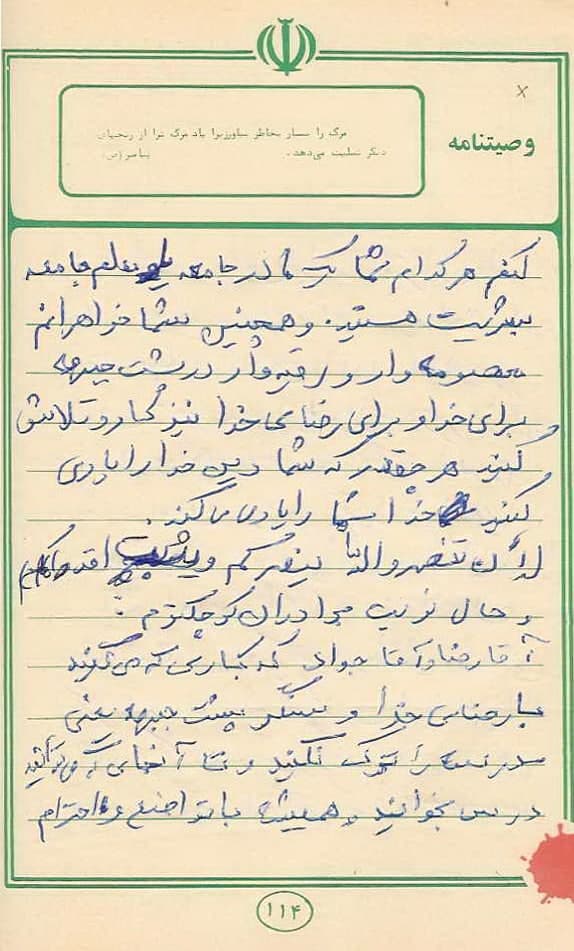 وصیتنامه
x
مرگ را بسیار بخاطر بیاورزیرا یاد مرگ ترا از رنجهای
دیگر تسلیت می‌دهد. پیامبر (ص)
کنم هر کدام شما یک مادر جامعه معلم جامعه
بشریت هستید. و همچنین شما خواهرانم
معصومه وار و رقیه وار در پشت جبهه
برای خدا و برای رضای خدا نیز کار و تلاش
کنید هر چقدر که شما دین خدا را یاری
کنید خدا شما را یاری می کند.
ان تنصروالله ینصرکم ویثبت اقدامکم
و حال نوبت برادران کوچکترم :
آقا رضا و آقا جواد که کاری که می کنید
با رضای خدا و سنگر پشت جبهه یعنی
مدرسه را ترک نکنید و تا آنجای که می توانید
درس بخوانید و همیشه با تواضع و احترام
۱۱۴